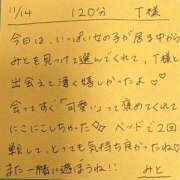 11/14 120分 T様
今日は、いっぱい女の子が居る中から
みとを見つけて選んでくれて、T様と
出会えて凄く嬉しかったよ♡
会ってすぐ「可愛い」って褒めてくれて
にこにこしちゃった♡ ベッドで2回
戦して、とっても気持ち良かったね♡
また一緒に遊ぼうね!! みと